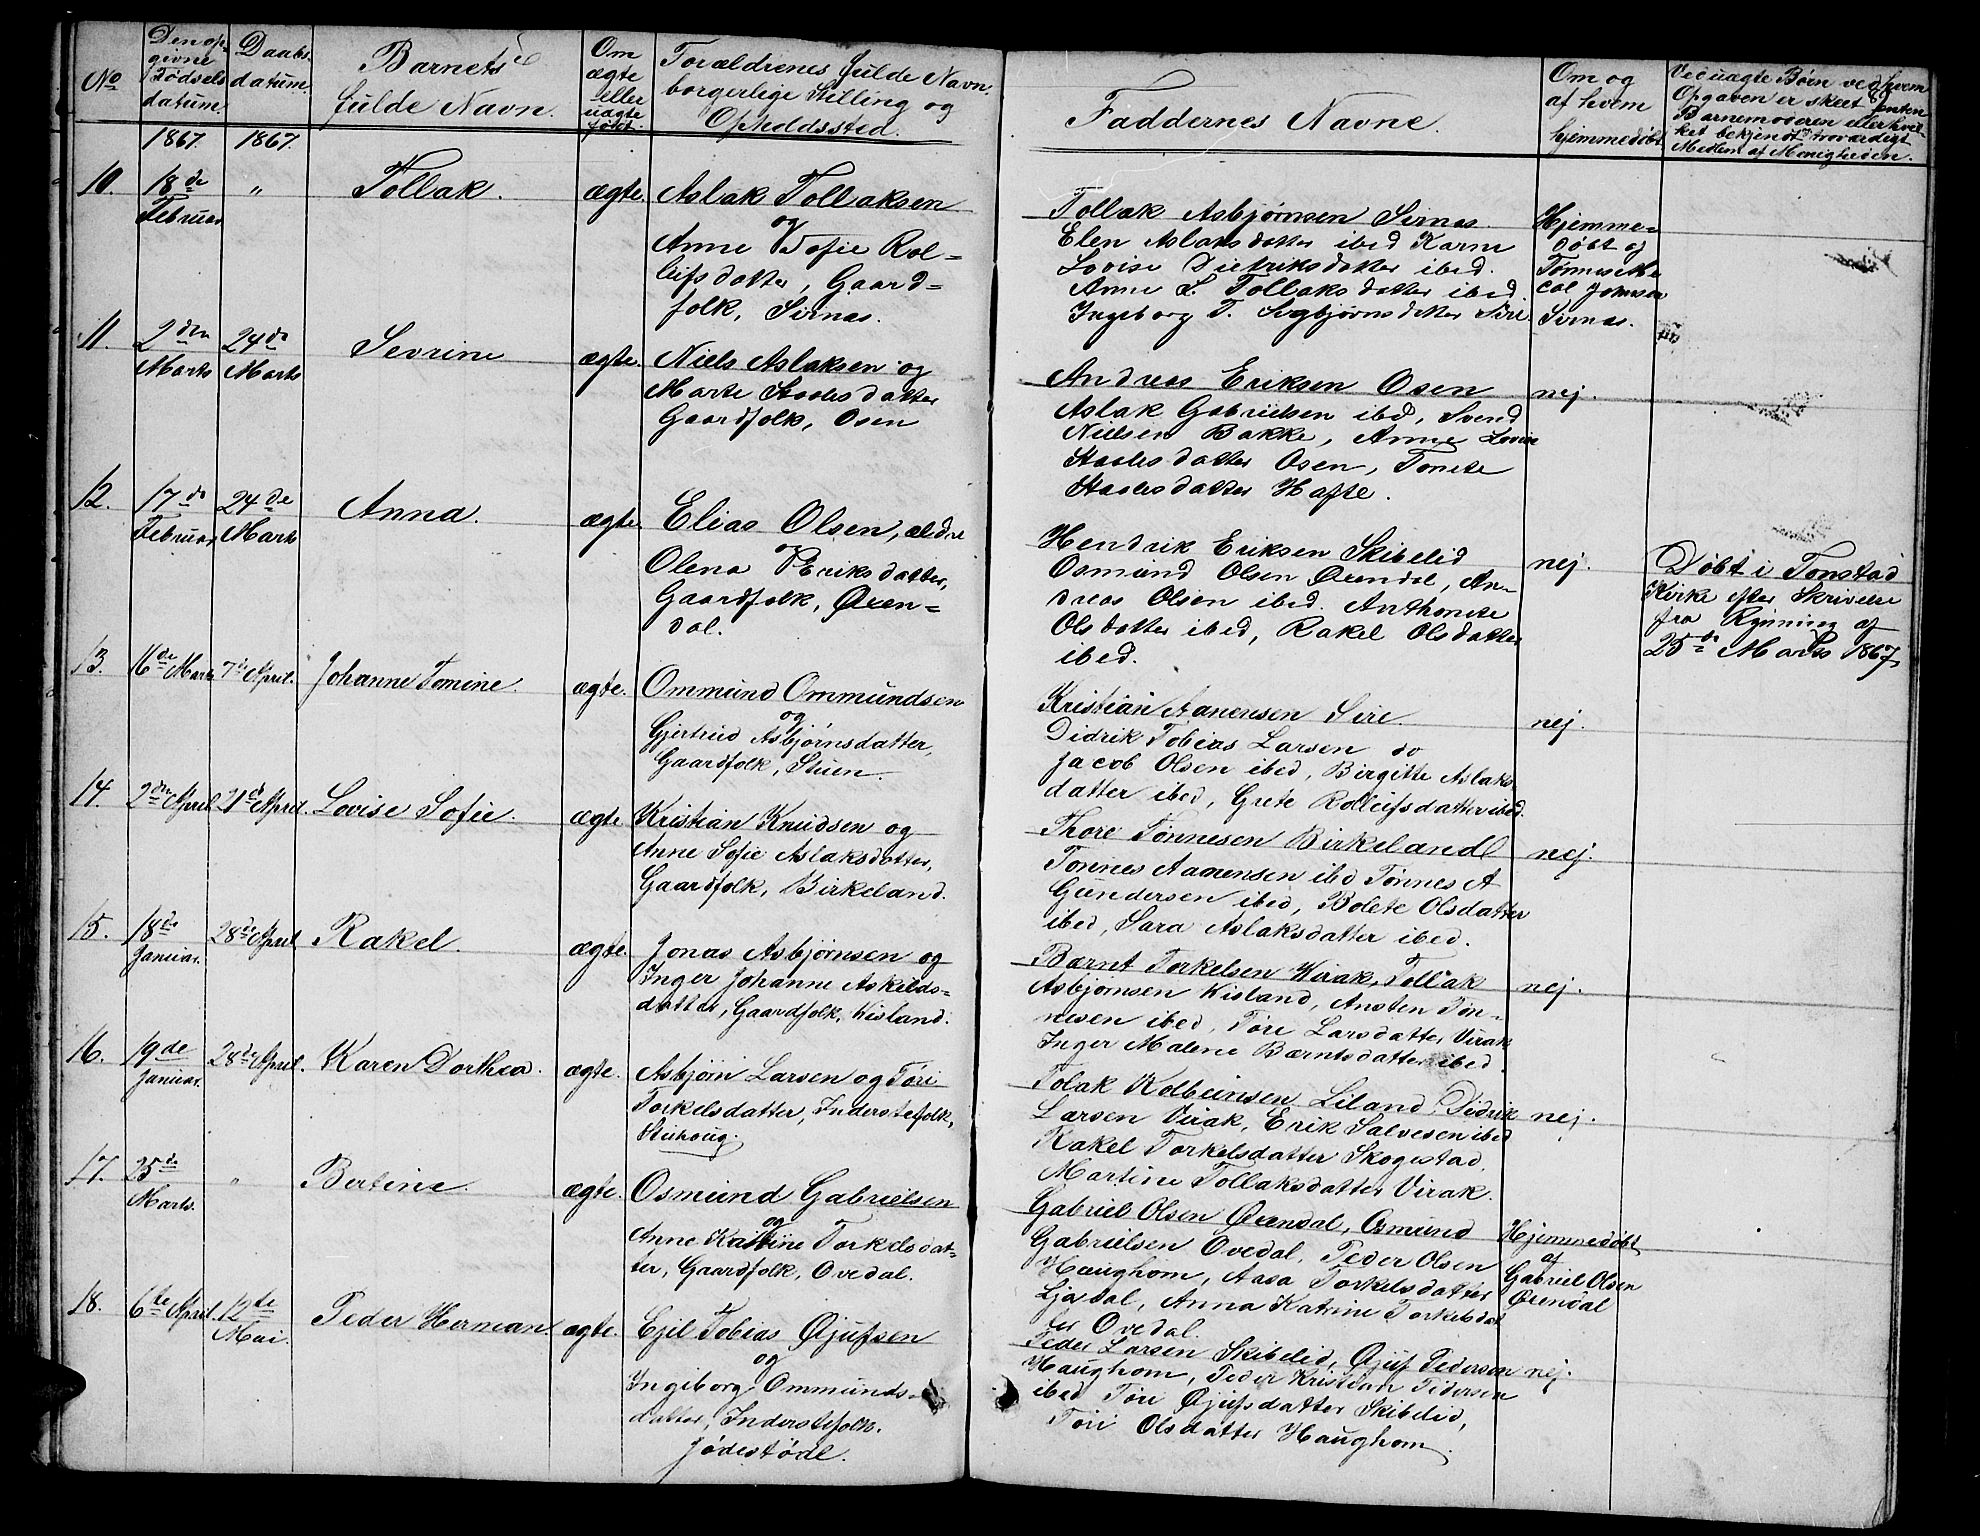 No
Den op-
givne
Fødsels
datum.
Daabs-
datum.
Barnets
fulde Navn.
Om
ægte
eller
uægte
født.
Forældrenes fulde Navn,
borgerlige Stilling og
Opholdssted.
Faddernes Navne.
Om og
af hvem
hjemmedøbt
Ved uægte Børn ved hvem
Opgaven er skeet Enten
Barnemoderen eller hvil-
ket bekjendt troværdigt
Medlem af Menigheden.
1867. 1867.
10. 18de
Februar
"
Tollak.
ægte.
Aslak Tollaksen
og
Anne Sofie Rol-
leifsdatter, Gaard-
folk, Sirnas.
Tollak Asbjørnsen Sirnas.
Elen Aslaksdatter ibed Karen
Lovise Didriksdatter ibed.
Anne L. Tollaksdatter ibed.
Ingeborg T. Segbjørnsdatter Sire
Hjemme-
døbt og
Tønnes
Johnsen
Sirnas.
11. 2den
Marts
24de
Marts
Sevrine
ægte.
Niels Aslaksen og
Marte Staalesdatter
Gaardfolk, Osen
Andreas Eriksen Osen
Aslak Gabrielsen ibed, Svend
Nielsen Bakke, Anne Lovise
Staalesdatter Osen, Tonete
Staalesdatter Hafte.
nej.
12. 17de
Februar
24de
Marts
Anna.
ægte.
Elias Olsen, ældre
og
Olena P Eriksdatter,
Gaardfolk, Øxen-
dal.
Hendrik Eriksen Skibelid
Osmund Olsen Øxendal, An-
dreas Olsen ibed. Anthonete
Olsdatter ibed, Rakel Olsdatter
ibed.
nej.
Døbt i Tonstad
Kirke efter Skrivelse
fra Rynning af
25de Marts 1867.
13. 16de Marts 7de April. Johanne Tomine.
ægte.
Ommund Ommundsen
og
Gjertrud Asbjørnsdatter,
Gaardfolk, Stuen.
Kristian Aanensen Sire
Didrik Tobias Larsen do
Jacob Olsen ibed, Birgitte Aslaks
datter ibed, Grete Rolleifsdatter ibed.
nej.
14. 2den April 21de April. Lovise Sofie.
ægte.
Kristian Knudsen og
Anne Sofie Aslaksdatter,
Gaardfolk, Birkeland.
Thore Tønnesen Birkeland
Tønnes Aanensen ibed Tønnes A
Gundersen ibed, Bolete Olsdatter
ibed, Sara Aslaksdatter ibed.
nej.
15. 18de
Januar.
28de April Rakel.
ægte.
Jonas Asbjørnsen og
Inger Johanne Askilds-
datter, Gaardfolk, Kisland.
Bærnt Torkelsen Virak, Tollak
Asbjørnsen Kisland, Ansten Tøn-
nesen ibed, Tori Larsdatter Virak
Inger Malene Bærntsdatter ibed.
nej.
16. 19de
Januar.
28de April. Karen Dorthea.
ægte.
Asbjørn Larsen og Tori
Torkelsdatter, Inderstefolk,
Tolak Kolbeinsen Liland, Didrik
Larsen Virak, Erik Salvesen ibed
Rakel Torkelsdatter Skogestad.
Martine Tollaksdatter Virak.
nej.
17. 25de
Marts.
"
Bertine.
ægte.
Osmund Gabrielsen
og
Anne Katrine Torkelsdat-
ter, Gaardfolk, Ovedal.
Gabriel Olsen Øxendal, Osmund
Gabrielsen Ovedal, Peder Olsen
Haughom, Aasa Torkelsdatter
Ljadal, Anna Katrine Torkelsdat
ter Ovedal.
Hjemmedøbt
af
Gabriel Olsen
Øxendal
18. 6te April. 12te
Mai.
Peder Herman.
ægte.
Egil Tobias Øjufsen
og
Ingeborg Ommunds-
datter, Inderstefolk.
Jødestøl.
Peder Larsen Skibelid, Øjuf Pedersen
Haughom, Peder Kristian Pedersen
ibed Tori Øjufsdatter Skibelid,
Tori Olsdatter Haughom.
nej.